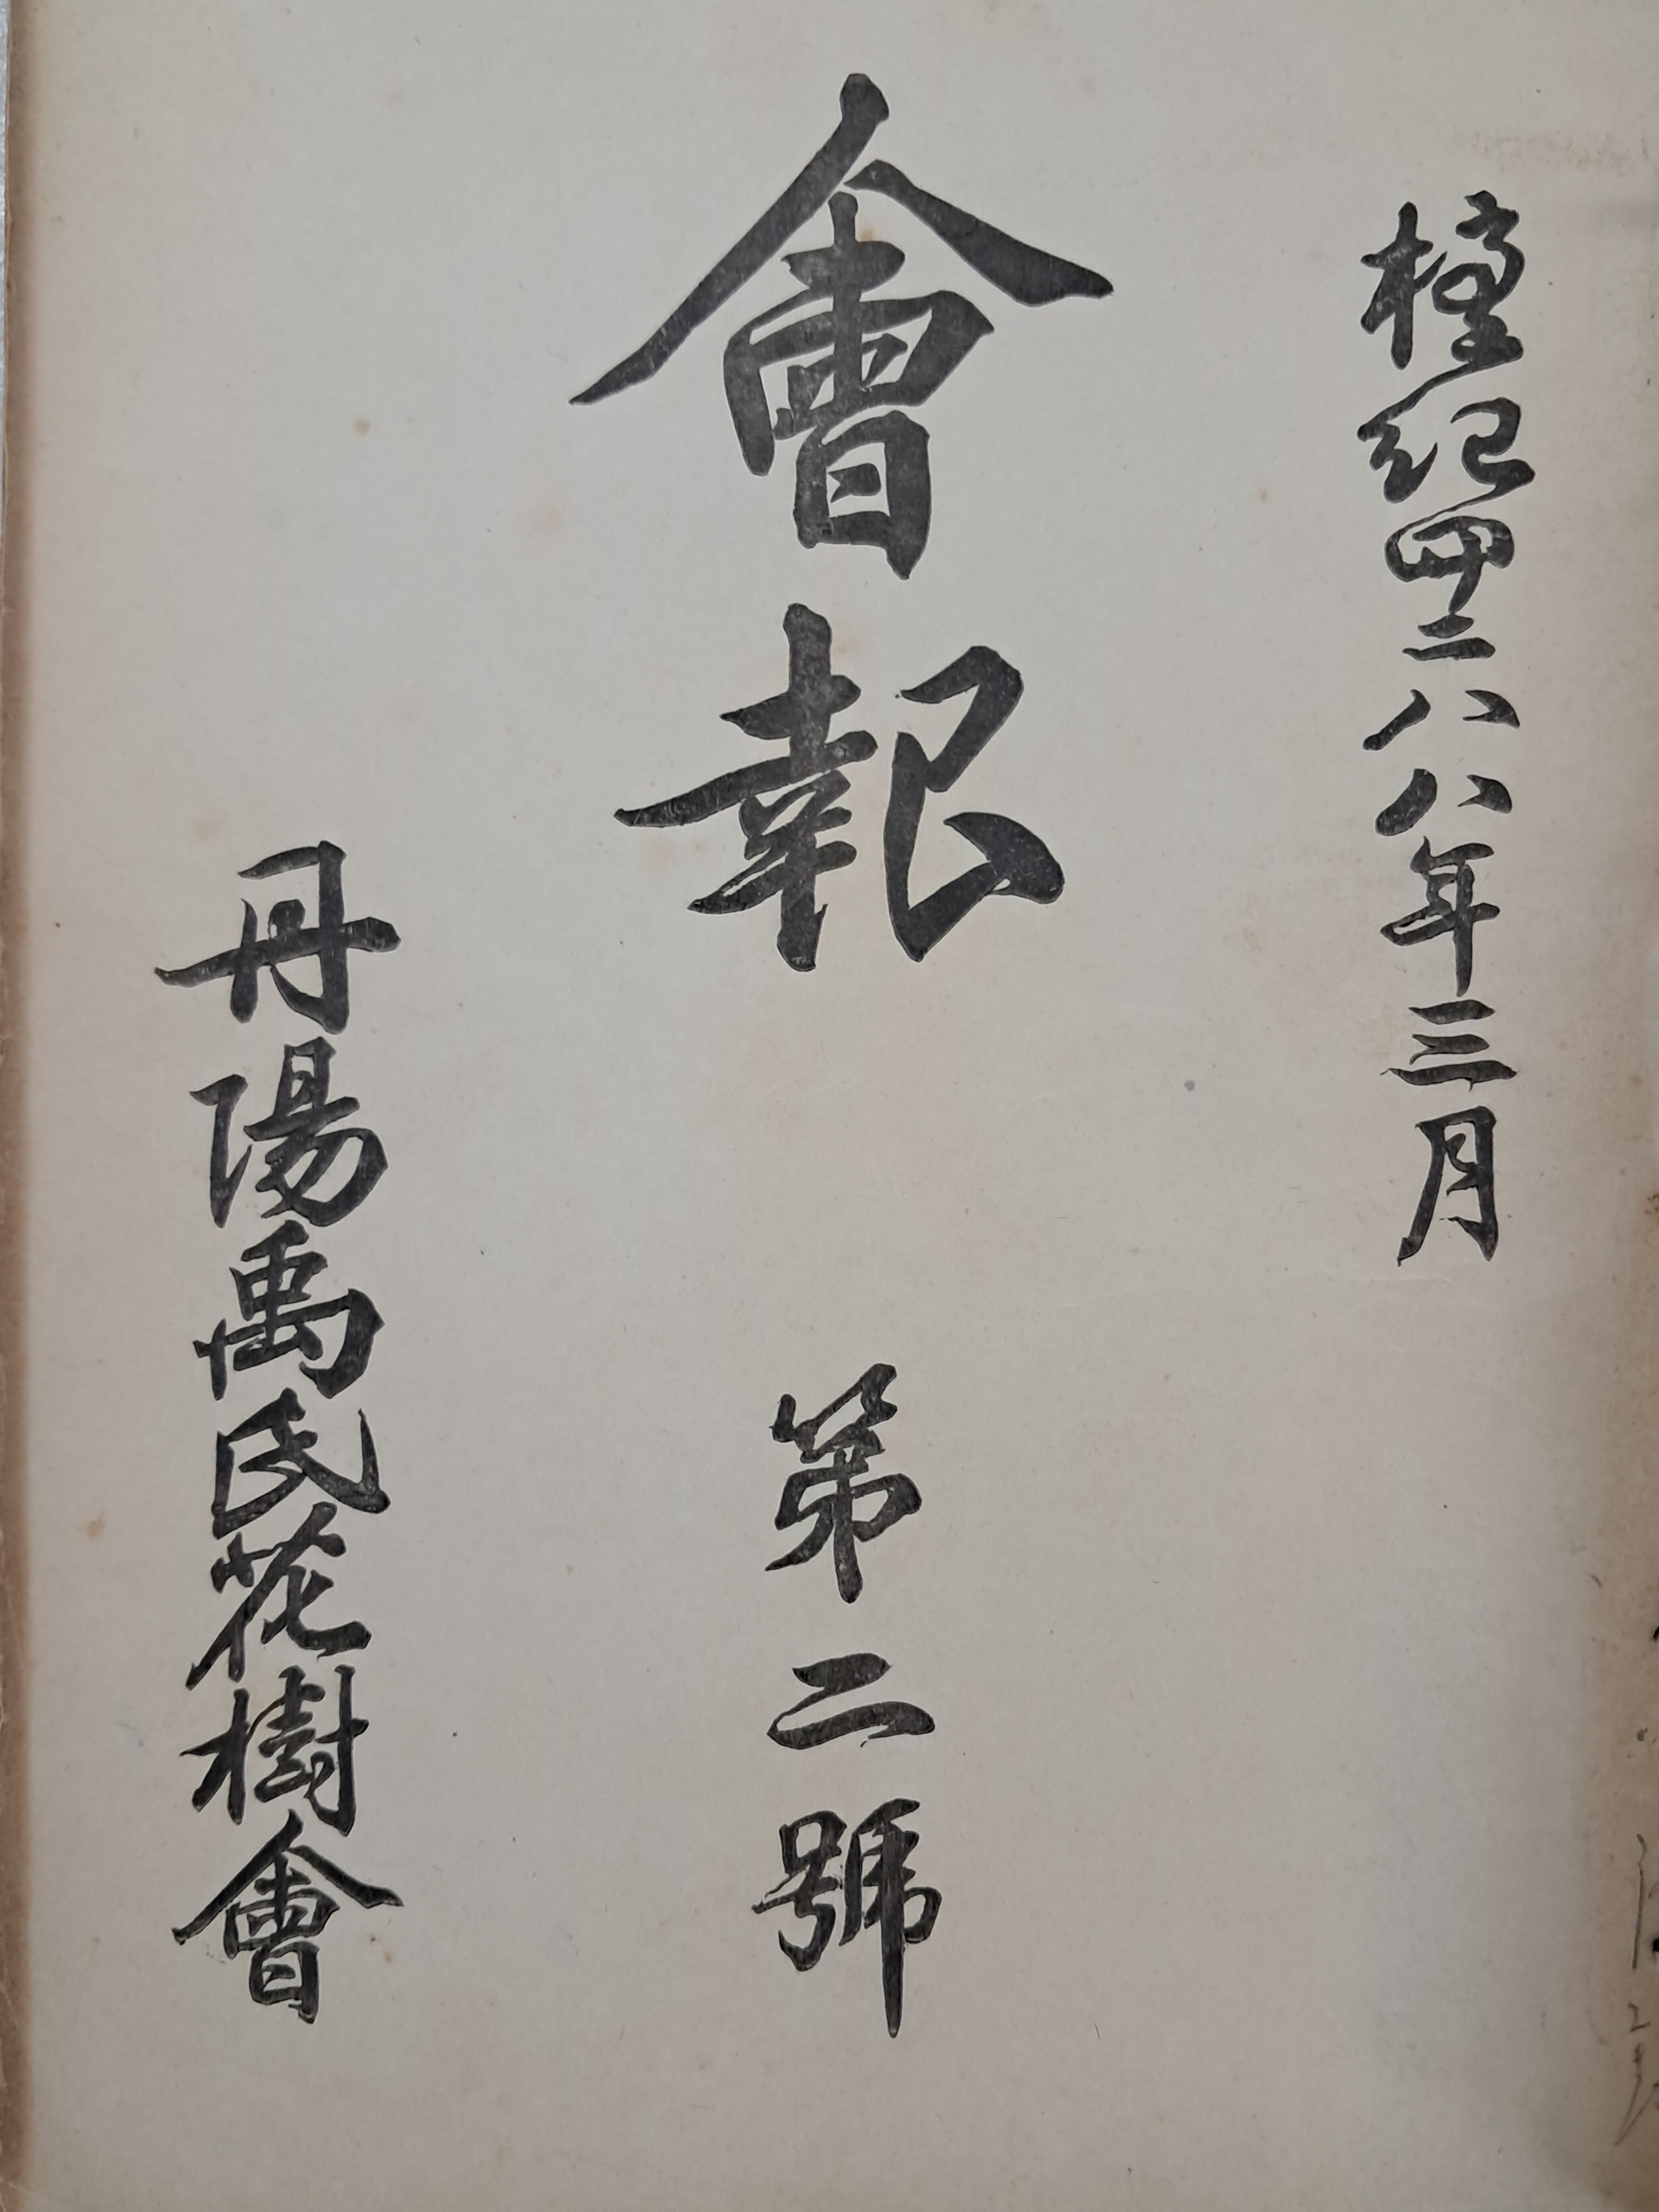 檀紀四二八八年三月
會報 第二號
丹陽禹氏花樹會